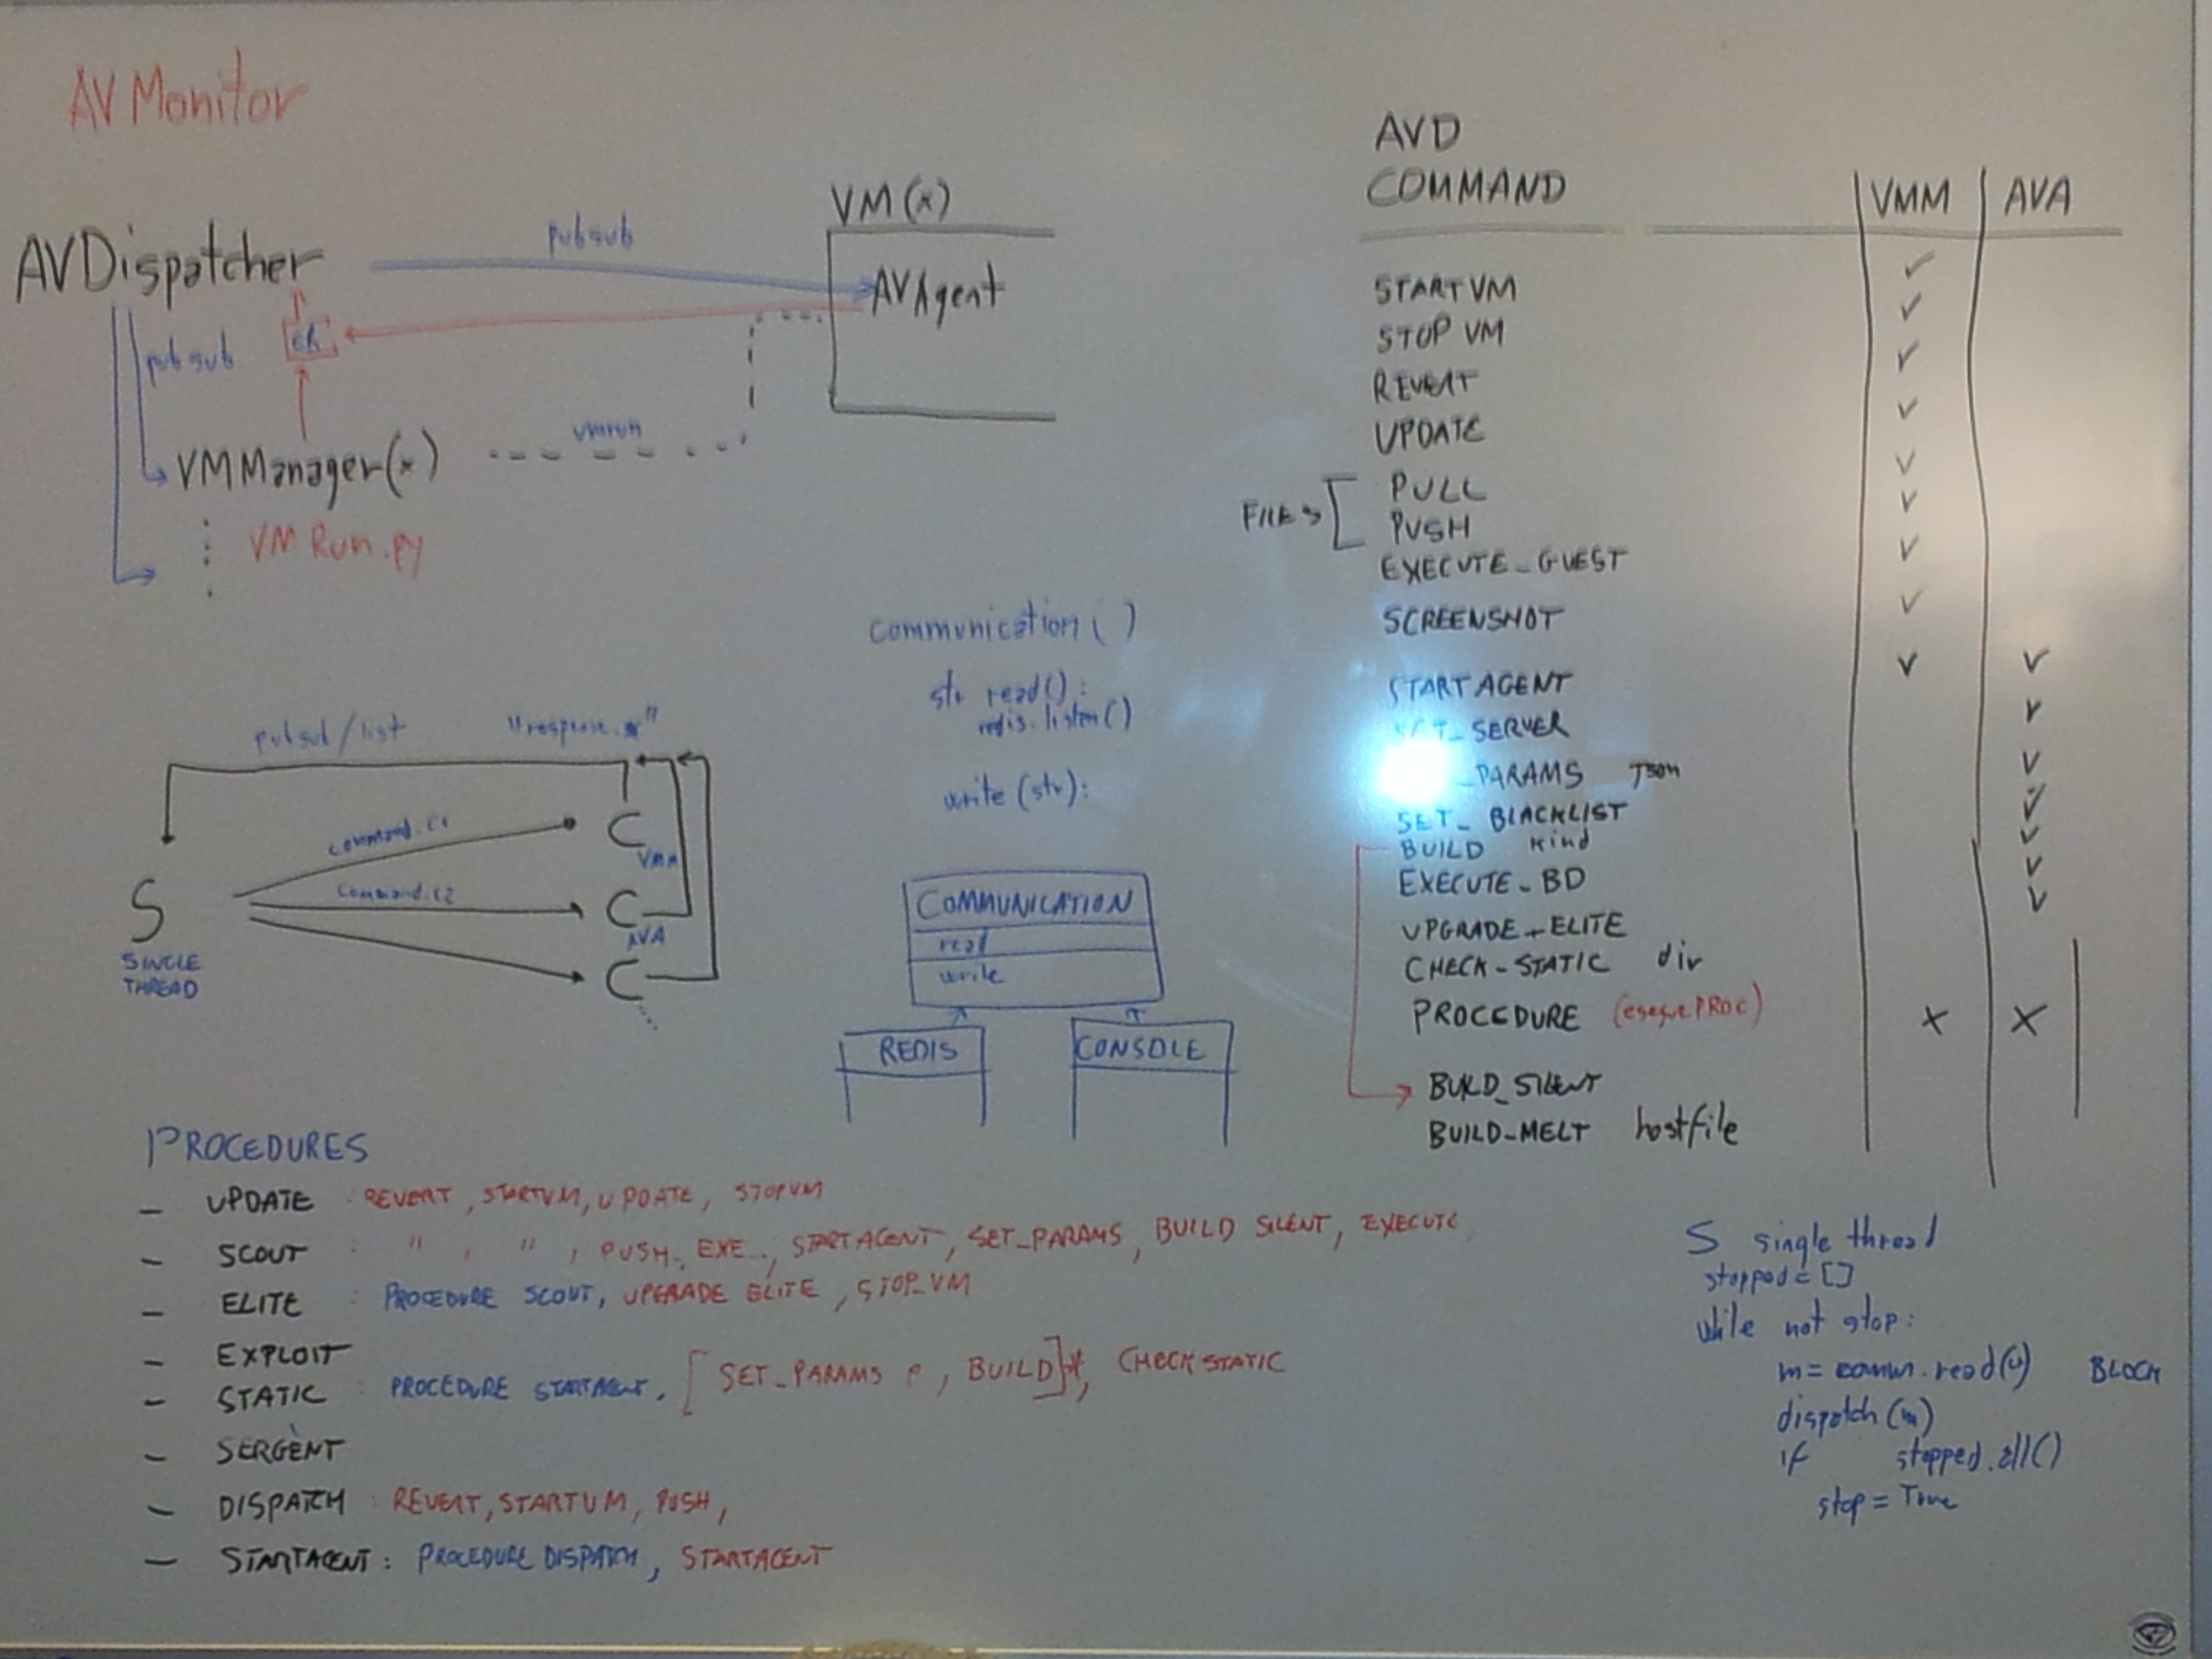 AV Monitor
AVDispatcher
pubsub
VM(x)
AVAgent
pubsub
CR
VMManager(x)
vmrun
VM Run.py
pubsub/list "response.*"
command.C1
Command.C2
S
SINGLE
THREAD
C
VMM
C
AVA
C
communication( )
str read():
redis.listen()
write (str):
COMMUNICATION
read
write
REDIS
CONSOLE
AVD
COMMAND VMM AVA
STARTVM ✓
STOP VM ✓
REVERT ✓
UPDATE ✓
FILES
PULL ✓
PUSH ✓
EXECUTE_GUEST ✓
SCREENSHOT ✓
START AGENT ✓ ✓
SERVER ✓
_PARAMS JSON ✓
SET_ BLACKLIST ✓
BUILD kind ✓
EXECUTE_BD ✓
UPGRADE_ELITE ✓
CHECK_STATIC dir
PROCEDURE (eseguePROC) X X
BUILD_SILENT
BUILD_MELT hostfile
PROCEDURES
- UPDATE : REVERT, STARTVM, UPDATE, STOPVM
- SCOUT : " , " , PUSH, EXE.., STARTAGENT, SET_PARAMS, BUILD SILENT, EXECUTE,
- ELITE : PROCEDURE SCOUT, UPGRADE ELITE, STOP_VM
- EXPLOIT
- STATIC : PROCEDURE STARTAGENT, [ SET_PARAMS P, BUILD]*, CHECKSTATIC
- SERGENT
- DISPATCH : REVERT, STARTVM, PUSH,
- STARTAGENT: PROCEDURE DISPATCH, STARTAGENT
S single thread
stopped = []
while not stop:
m = comm.read() BLOCK
dispatch(m)
if stopped.all()
stop = True